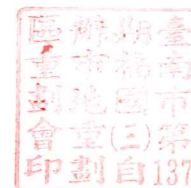 臺南市第137
期福國(二)自
辦市地重劃
區重劃會印